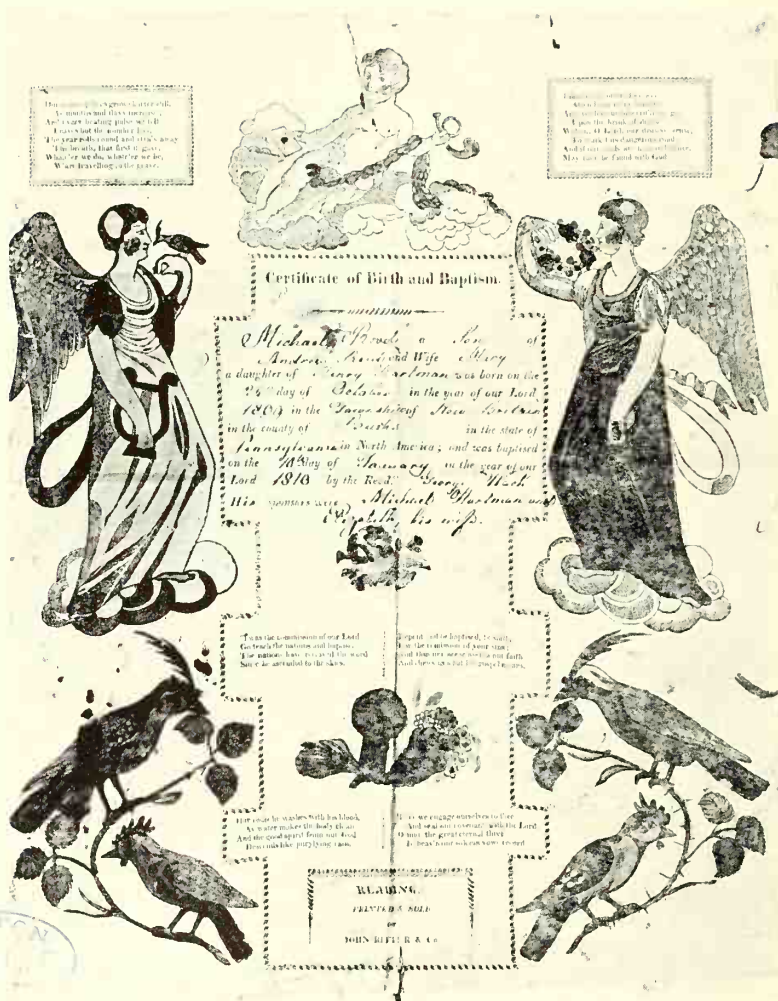 grows shorter still,
As months and days increase;
And every beating pulse we tell
Leaves but the number less.
The year rolls round and steals away
The breath, that first it gave;
Whate'er we do, where'er we be,
We're travelling to the grave.
Upon the brink of
O Lord, our
this dangerous road
And if our souls are
May be found with God
Certificate of Birth and Baptism.
Michael a Son of
Andrew and Wife Mary
a daughter of Henry Hartman was born on the
day of October in the year of our Lord
in the Township of New Britain
in the county of Bucks in the state of
Pennsylvania in North America; and was baptised
on the day of January in the year of our
Lord 1810 by the Revd. George
His sponsors were Michael Hartman and
Elizabeth his wife.
'Twas the commission of our Lord
Go teach the nations and baptise,
The nations have received the word
Since he ascended to the skies.
Repent and be baptised, he saith,
For the remission of your sins;
And thus our sense assists our faith
And shows us what his gospel means.
Our souls he washes with his blood,
As water makes the body clean
And the good spirit from our God
Descends like purifying rain.
Thus we engage ourselves to thee
And seal our covenant with the Lord
O may the great eternal three
In heav'n our solemn vows record
READING,
PRINTED & SOLD
BY
JOHN RITTER & Co.